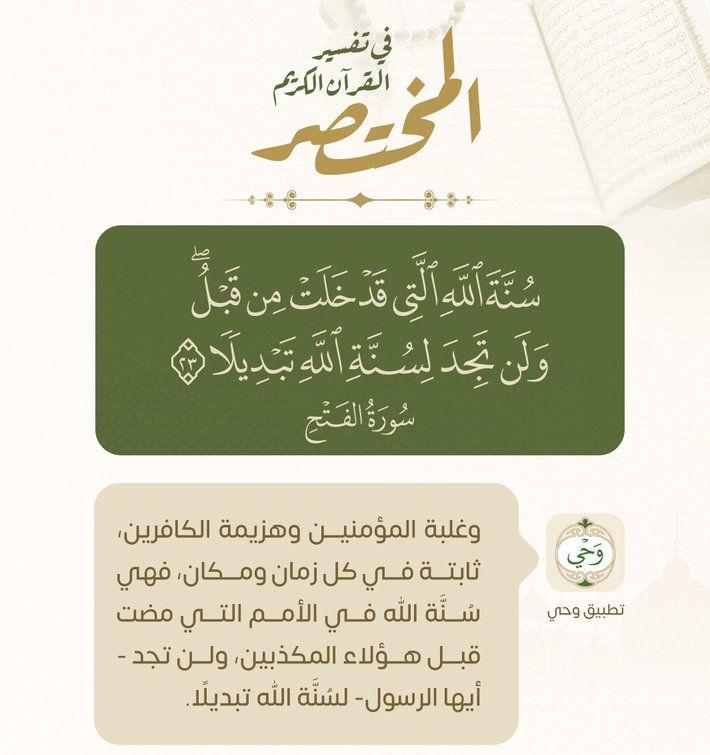 في تفسير
القرآن الكريم
المختصر
سُنَّةَ ٱللَّهِ ٱلَّتِي قَدۡ خَلَتۡ مِن قَبۡلُۖ
وَلَن تَجِدَ لِسُنَّةِ ٱللَّهِ تَبۡدِيلٗا ٢٣
سُورَةُ الفَتۡحِ
وغلبة المؤمنيـن وهزيمة الكافرين،
ثابتـة فـي كل زمان ومـكان، فهي
سُـنَّة الله فـي الأمـم التـي مضت
قبـل هـؤلاء المكذبين، ولـن تجد -
أيها الرسول- لسُنَّة الله تبديلًا.
وَحْي
تطبيق وحي